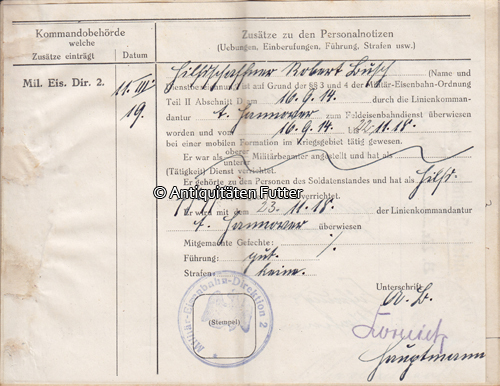 Kommandobehörde
welche
Zusätze einträgt
Datum
Zusätze zu den Personalnotizen
(Uebungen, Einberufungen, Führung, Strafen usw.)
Mil. Eis. Dir. 2.
11. III.
19.
Hilfsschaffner Robert Busch (Name und
Dienstbezeichnung) ist auf Grund der §§ 3 und 4 der Militär-Eisenbahn-Ordnung
Teil II Abschnitt D am 16.9.14. durch die Linienkomman-
dantur f. Hannover zum Feldeisenbahndienst überwiesen
worden und vom 16.9.14. bis 22.11.18.
bei einer mobilen Formation im Kriegsgebiet tätig gewesen.
Er war als oberer
unterer Militärbeamter angestellt und hat als
(Tätigkeit) Dienst verrichtet.
Er gehörte zu den Personen des Soldatenstandes und hat als Hilfs.
verrichtet.
Er wird mit dem 23.11.18. der Linienkommandantur
f. Hannover überwiesen
Mitgemachte Gefechte: ·/.
Führung: gut.
Strafen: keine.
© Antiquitäten Futter
Militär-Eisenbahn-Direktion 2
(Stempel)
Unterschrift
Hauptmann